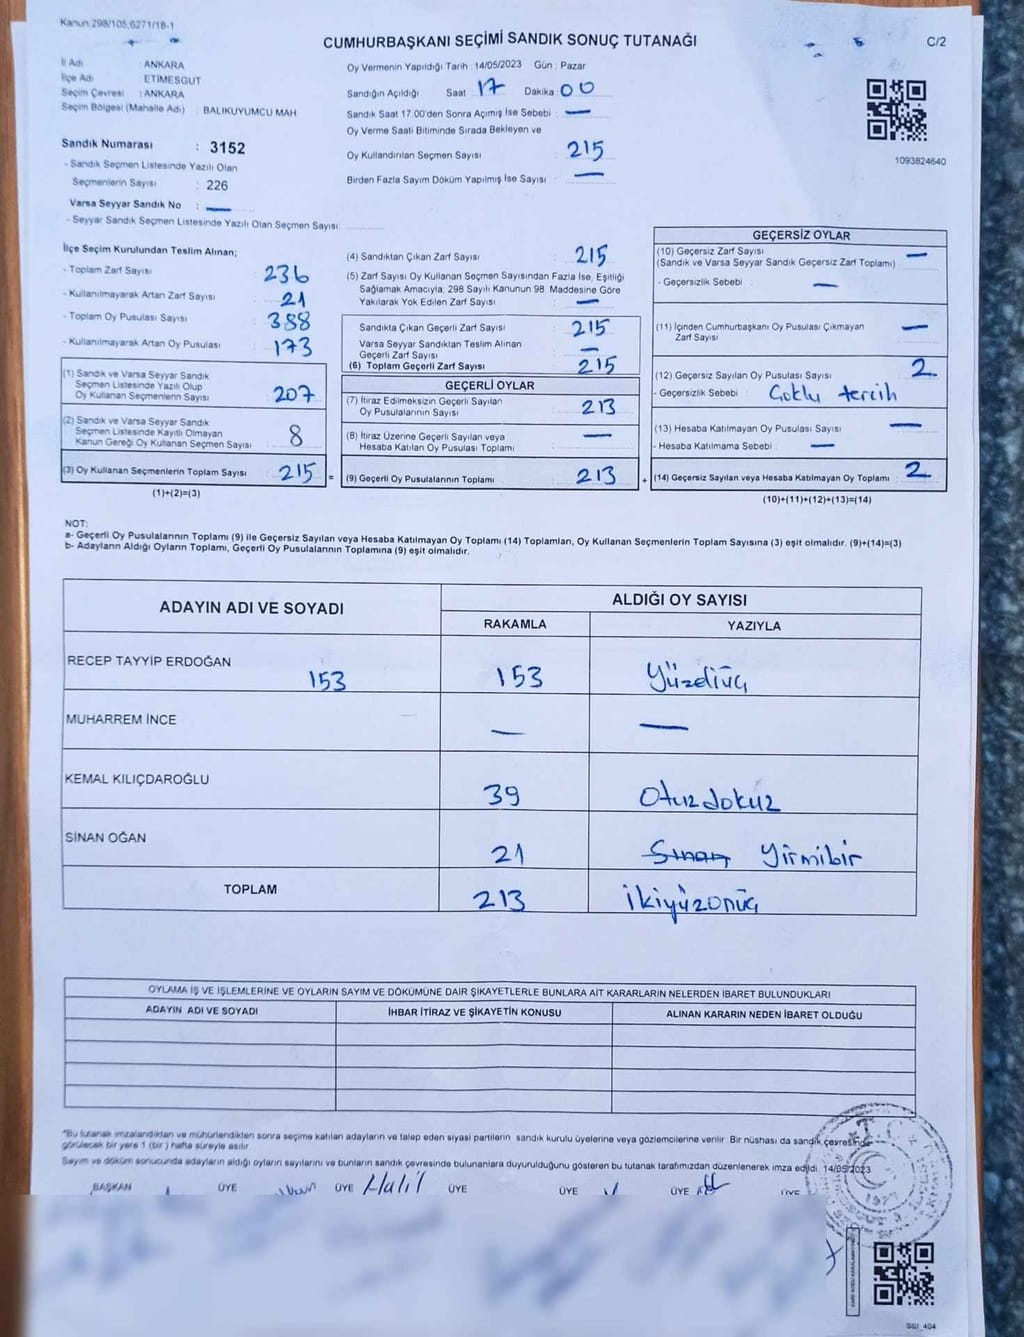 Kanun.298/105,6271/18-1
CUMHURBAŞKANI SEÇİMİ SANDIK SONUÇ TUTANAĞI
C/2
İl Adı : ANKARA
İlçe Adı : ETİMESGUT
Seçim Çevresi : ANKARA
Seçim Bölgesi (Mahalle Adı) : BALIKUYUMCU MAH
Sandık Numarası : 3152
- Sandık Seçmen Listesinde Yazılı Olan
Seçmenlerin Sayısı : 226
Varsa Seyyar Sandık No : —
- Seyyar Sandık Seçmen Listesinde Yazılı Olan Seçmen Sayısı
Oy Vermenin Yapıldığı Tarih : 14/05/2023 Gün : Pazar
Sandığın Açıldığı Saat 17 Dakika 00
Sandık Saat 17.00'den Sonra Açımış İse Sebebi : —
Oy Verme Saati Bitiminde Sırada Bekleyen ve
Oy Kullandırılan Seçmen Sayısı : 215
Birden Fazla Sayım Döküm Yapılmış İse Sayısı : —
1093824640
İlçe Seçim Kurulundan Teslim Alınan;
- Toplam Zarf Sayısı 236
- Kullanılmayarak Artan Zarf Sayısı : 21
- Toplam Oy Pusulası Sayısı : 388
- Kullanılmayarak Artan Oy Pusulası : 173
(1) Sandık ve Varsa Seyyar Sandık
Seçmen Listesinde Yazılı Olup
Oy Kullanan Seçmenlerin Sayısı : 207
(2) Sandık ve Varsa Seyyar Sandık
Seçmen Listesinde Kayıtlı Olmayan
Kanun Gereği Oy Kullanan Seçmen Sayısı : 8
(3) Oy Kullanan Seçmenlerin Toplam Sayısı : 215 =
(1)+(2)=(3)
(4) Sandıktan Çıkan Zarf Sayısı : 215
(5) Zarf Sayısı Oy Kullanan Seçmen Sayısından Fazla İse, Eşitliği
Sağlamak Amacıyla, 298 Sayılı Kanunun 98. Maddesine Göre
Yakılarak Yok Edilen Zarf Sayısı : —
Sandıkta Çıkan Geçerli Zarf Sayısı : 215
Varsa Seyyar Sandıktan Teslim Alınan
Geçerli Zarf Sayısı : —
(6) Toplam Geçerli Zarf Sayısı : 215
GEÇERLİ OYLAR
(7) İtiraz Edilmeksizin Geçerli Sayılan
Oy Pusulalarının Sayısı : 213
(8) İtiraz Üzerine Geçerli Sayılan veya
Hesaba Katılan Oy Pusulası Toplamı : —
(9) Geçerli Oy Pusulalarının Toplamı : 213 +
GEÇERSİZ OYLAR
(10) Geçersiz Zarf Sayısı
(Sandık ve Varsa Seyyar Sandık Geçersiz Zarf Toplamı) : —
- Geçersizlik Sebebi : —
(11) İçinden Cumhurbaşkanı Oy Pusulası Çıkmayan
Zarf Sayısı : —
(12) Geçersiz Sayılan Oy Pusulası Sayısı : 2
- Geçersizlik Sebebi : Çoklu tercih
(13) Hesaba Katılmayan Oy Pusulası Sayısı : —
- Hesaba Katılmama Sebebi : —
(14) Geçersiz Sayılan veya Hesaba Katılmayan Oy Toplamı : 2
(10)+(11)+(12)+(13)=(14)
NOT:
a- Geçerli Oy Pusulalarının Toplamı (9) ile Geçersiz Sayılan veya Hesaba Katılmayan Oy Toplamı (14) Toplamları, Oy Kullanan Seçmenlerin Toplam Sayısına (3) eşit olmalıdır. (9)+(14)=(3)
b- Adayların Aldığı Oyların Toplamı, Geçerli Oy Pusulalarının Toplamına (9) eşit olmalıdır.
ADAYIN ADI VE SOYADI
ALDIĞI OY SAYISI
RAKAMLA YAZIYLA
RECEP TAYYİP ERDOĞAN 153 153 Yüzdiüç
MUHARREM İNCE — —
KEMAL KILIÇDAROĞLU 39 Otuzdokuz
SİNAN OĞAN 21 Sinan Yirmibir
TOPLAM 213 İkiyüzonüç
OYLAMA İŞ VE İŞLEMLERİNE VE OYLARIN SAYIM VE DÖKÜMÜNE DAİR ŞİKAYETLERLE BUNLARA AİT KARARLARIN NELERDEN İBARET BULUNDUKLARI
ADAYIN ADI VE SOYADI İHBAR İTİRAZ VE ŞİKAYETİN KONUSU ALINAN KARARIN NEDEN İBARET OLDUĞU
"Bu tutanak imzalandıktan ve mühürlendikten sonra seçime katılan adayların ve talep eden siyasi partilerin sandık kurulu üyelerine veya gözlemcilerine verilir. Bir nüshası da sandık çevresinde
görülecek bir yere 1 (bir) hafta süreyle asılır.
Sayım ve döküm sonucunda adayların aldığı oyların sayılarını ve bunların sandık çevresinde bulunanlara duyurulduğunu gösteren bu tutanak tarafımızdan düzenlenerek imza edildi. 14/05/2023
BAŞKAN ÜYE ÜYE Halil ÜYE ÜYE ÜYE ÜYE
T.C.
SSI_404